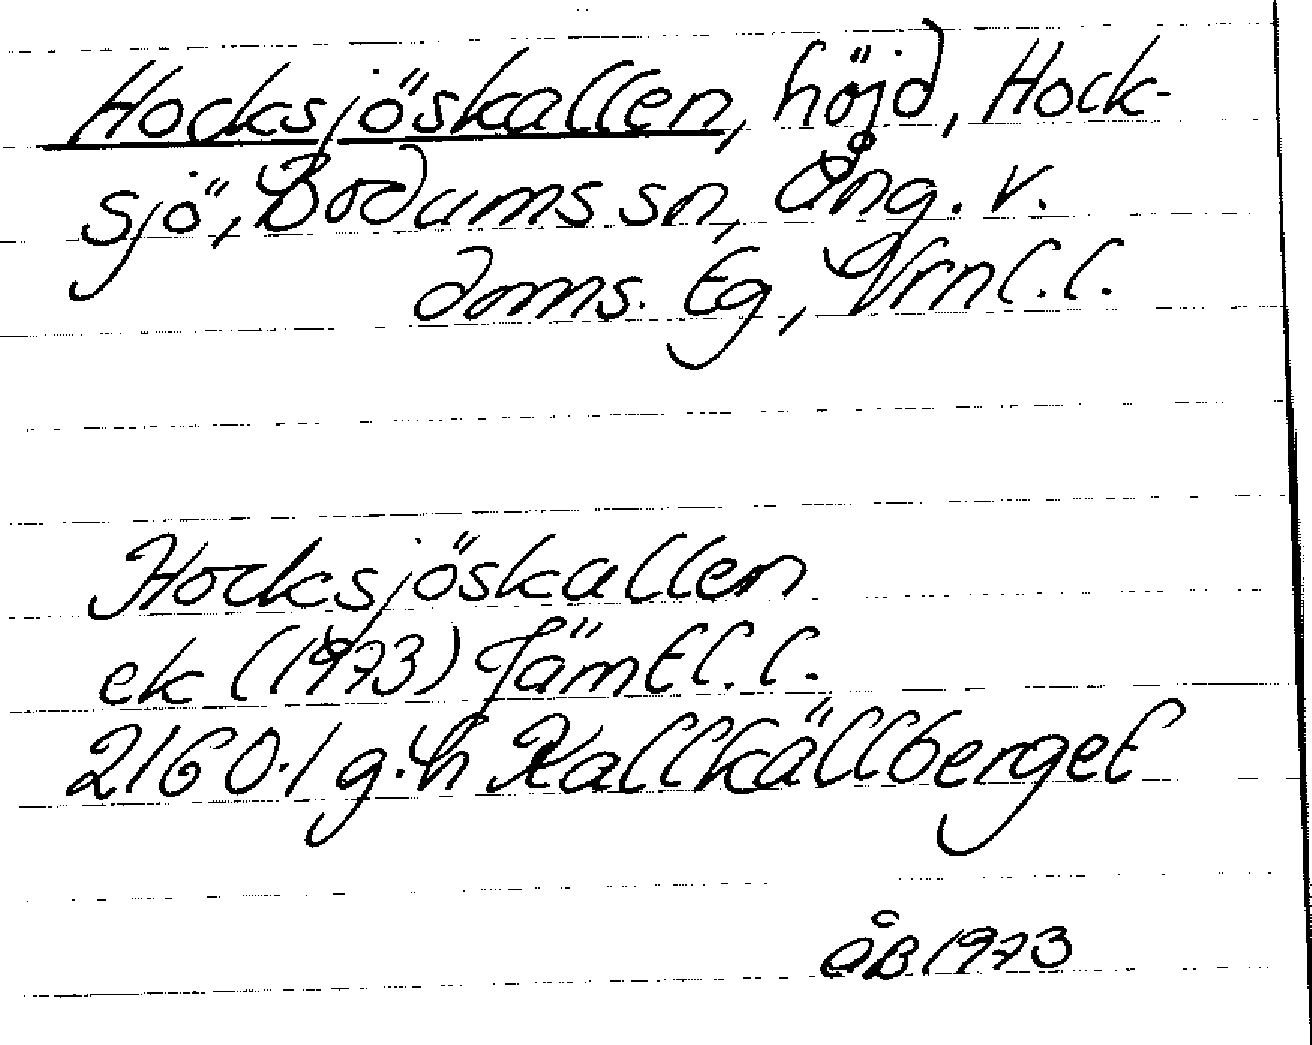 Hocksjöskallen, höjd, Hock-
sjö, Bodums sn, Ång. v.
doms. tg, Vrnl. l.
Hocksjöskallen
ek (1973) Jämtl. l.
2160.1 g.h Kallkällberget
ÅB 1973